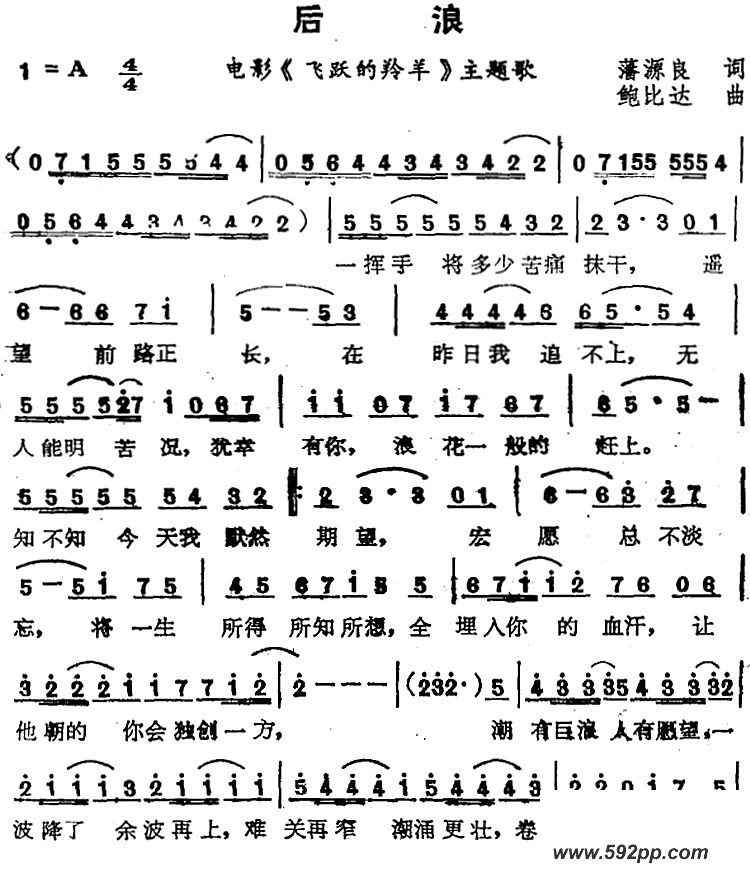 后 浪
1 = A 4/4 电影《飞跃的羚羊》主题歌 藩源良 词
鲍比达 曲
(0 7 1 5 5 5 5 5 4 4 | 0 5 6 4 4 3 4 3 4 2 2 | 0 7 1 5 5 5 5 5 4 |
0 5 6 4 4 3 4 3 4 2 2) | 5 5 5 5 5 5 4 3 2 | 2 3 · 3 0 1 |
一挥手 将多少苦痛 抹干， 遥
6 - 6 6 7 i | 5 - - 5 3 | 4 4 4 4 6 6 5 · 5 4 |
望 前路正 长， 在 昨日我 追 不上，无
5 5 5 5 5 2 7 i 0 6 7 | i i 0 7 i 7 6 7 | 6 5 · 5 - |
人能明 苦 况，犹幸 有你，浪 花一 般的 赶上。
5 5 5 5 5 5 4 3 2 |: 2 3 · 3 0 1 | 6 - 6 3 2 7 |
知不知 今 天我 默然 期望， 宏 愿 总 不淡
5 - 5 i 7 5 | 4 5 6 7 i 5 5 | 6 7 i i 2 7 6 0 6 |
忘， 将 一生 所得 所知所想，全 埋入你 的 血汗，让
3 2 2 2 i i 7 7 i 2 | 2 - - - | (2 3 2 · ) 5 | 4 3 3 3 5 4 3 3 3 2 |
他朝的 你会独创一方， 潮 有巨浪 人有愿望，一
2 i i i 3 2 i i i i | 5 4 4 4 i 5 4 4 4 3 | 2 2 0 i 7 5
波降了 余波再上，难 关再窄 潮涌更壮，卷
www.592pp.com